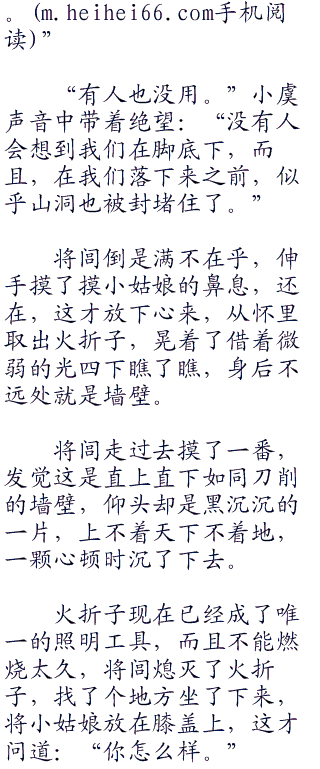 。(m.heihei66.com手机阅
读)”
“有人也没用。”小虞
声音中带着绝望：“没有人
会想到我们在脚底下，而
且，在我们落下来之前，似
乎山洞也被封堵住了。”
将闾倒是满不在乎，伸
手摸了摸小姑娘的鼻息，还
在，这才放下心来，从怀里
取出火折子，晃着了借着微
弱的光四下瞧了瞧，身后不
远处就是墙壁。
将闾走过去摸了一番，
发觉这是直上直下如同刀削
的墙壁，仰头却是黑沉沉的
一片，上不着天下不着地，
一颗心顿时沉了下去。
火折子现在已经成了唯
一的照明工具，而且不能燃
烧太久，将闾熄灭了火折
子，找了个地方坐了下来，
将小姑娘放在膝盖上，这才
问道：“你怎么样。”